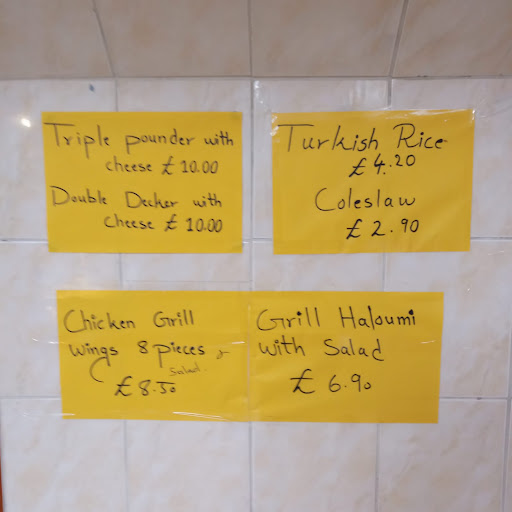 Triple pounder with
cheese £ 10.00
Double Decker with
cheese £ 10.00
Turkish Rice
£ 4.20
Coleslaw
£ 2.90
Chicken Grill
wings 8 pieces &
Salad.
£ 8.50
Grill Haloumi
with Salad
£ 6.90